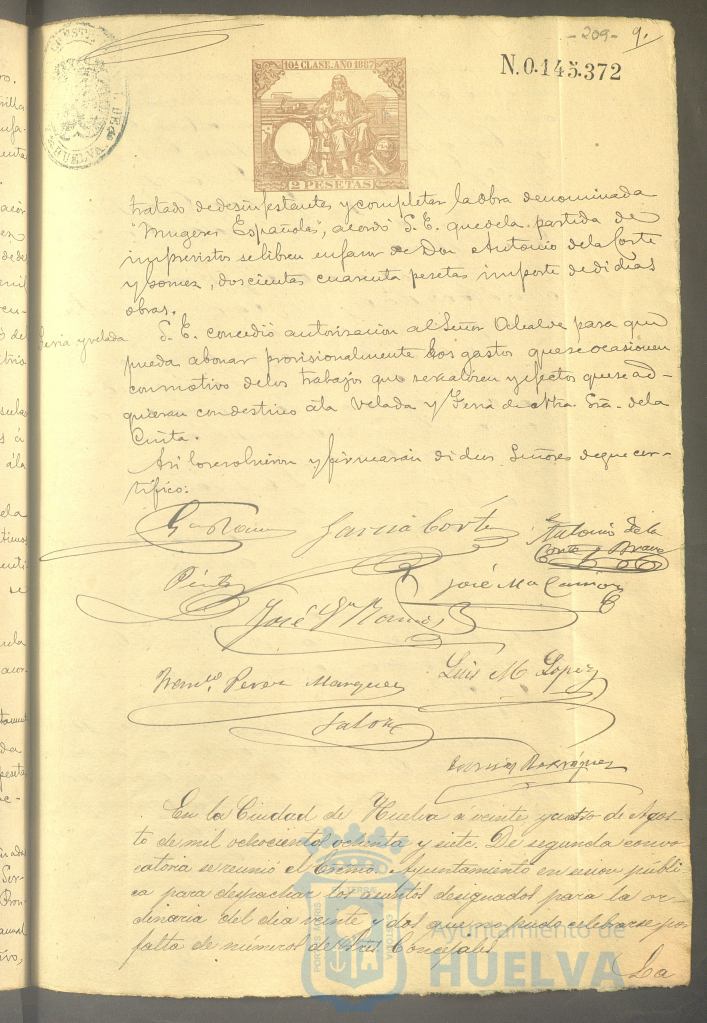 - 209 - 9.
N.0.145.372
10ª CLASE. AÑO 1887
2 PESETAS
HUELVA
tratado de desinfestantes y completar la obra denominada
"Mugeres Españolas", acordó S. E. que de la partida de
imprevistos se libren en favor de Don Antonio de la Corte
y Gomez, doscientas cuarenta pesetas importe de dichas
obras.
Feria y velada
S. E. concedió autorizacion al Señor Alcalde para que
pueda abonar provisionalmente los gastos que se ocasionen
con motivo de los trabajos que se realicen y efectos que se ad-
quieran con destino á la Velada y Feria de Ntra. Sra. de la
Cinta.
Asi lo resolvieron y firmarán dichos Señores de que cer-
tifico:
Garcia Cortés
Antonio de la
Corte y Bravo
José Mª
José
Perez Marquez
Luis M. Lopez
En la Ciudad de Huelva á veinte y cuatro de Agos-
to de mil ochocientos ochenta y siete. De segunda convo-
catoria se reunió el Excmo. Ayuntamiento en sesion públi-
ca para despachar los asuntos designados para la or-
dinaria del dia veinte y dos que no pudo celebrarse por
falta de número de Sres. Concejales.
La
Ayuntamiento de
HUELVA